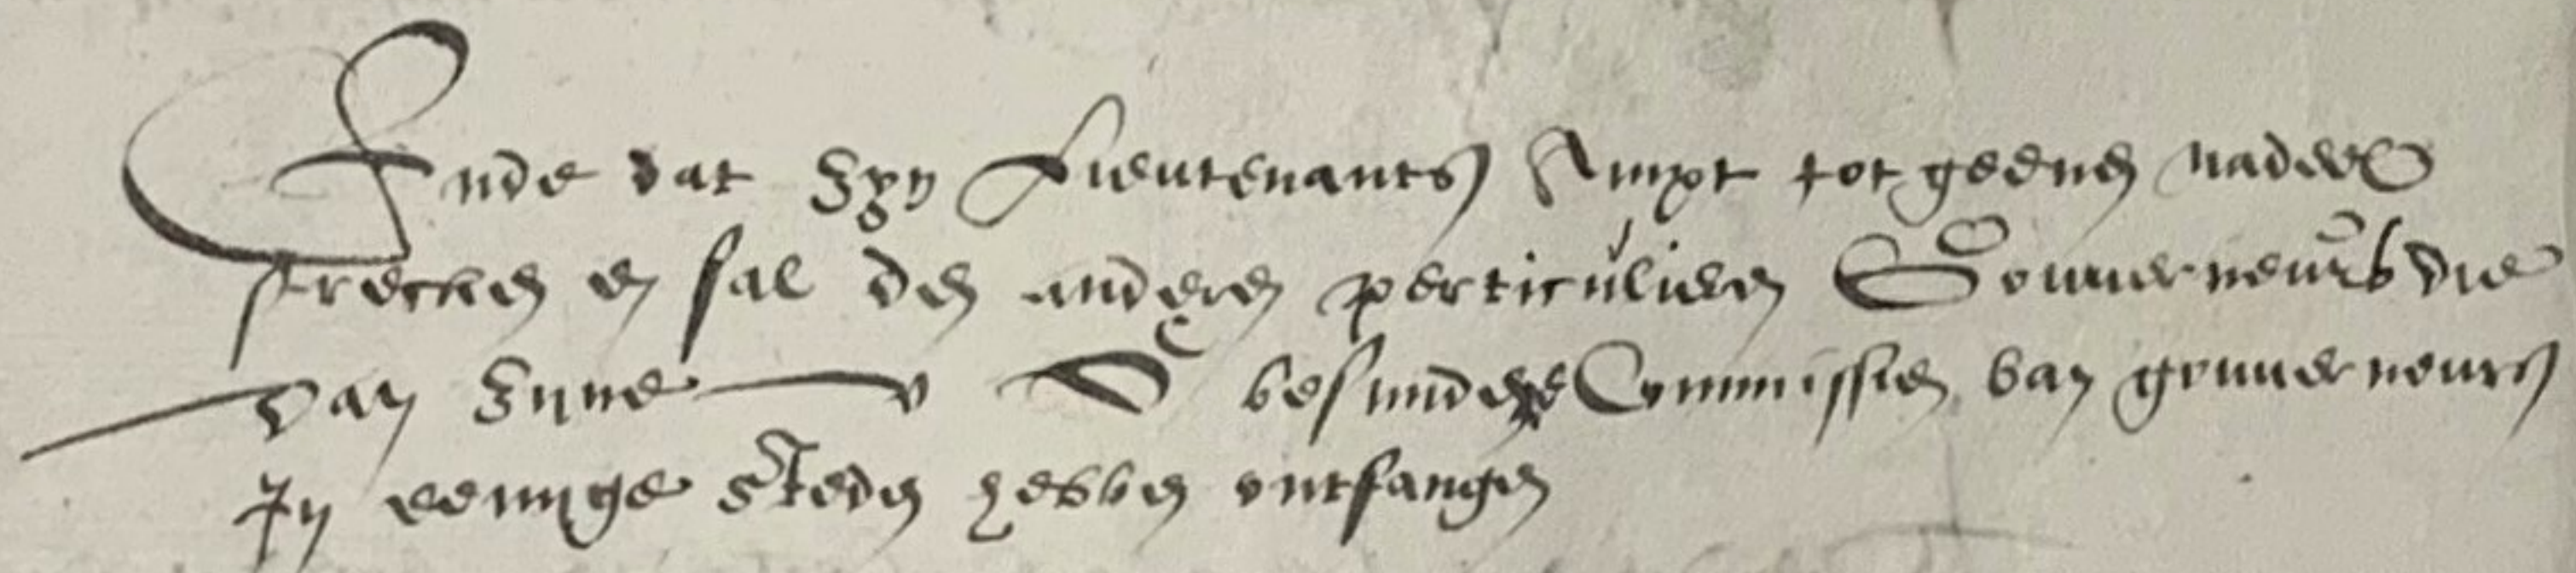 Ende dat zyn Lieutenants Ampt tot geenen nadeele
strecken en sal den anderen perticulieren Gouuerneurs die
van zyne besundere Commissien van gouuerneurs
In eenige steden hebben ontfangen